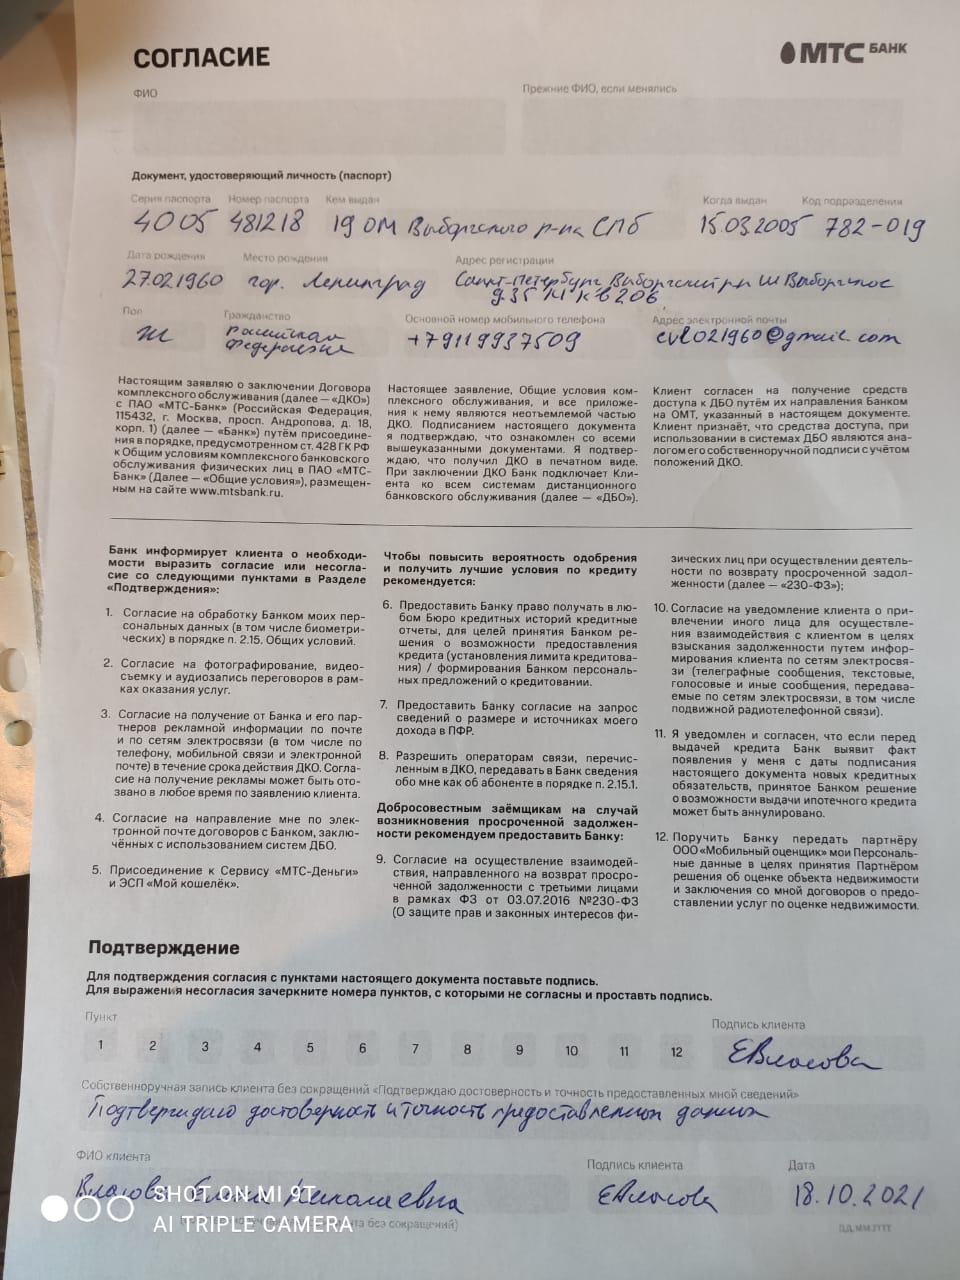 СОГЛАСИЕ
МТС БАНК
ФИО
Прежние ФИО, если менялись
Документ, удостоверяющий личность (паспорт)
Серия паспорта Номер паспорта Кем выдан Когда выдан Код подразделения
4005 481218 19 ОМ Выборгского р-на СПб 15.03.2005 782-019
Дата рождения Место рождения Адрес регистрации
27.02.1960 гор. Ленинград Санкт-Петербург Выборгский рн ш Выборгское
д 35 кв 206
Пол Гражданство Основной номер мобильного телефона Адрес электронной почты
ж Российская +79119937509 evl021960@gmail.com
Федерация
Настоящим заявляю о заключении Договора
комплексного обслуживания (далее — «ДКО»)
с ПАО «МТС-Банк» (Российская Федерация,
115432, г. Москва, просп. Андропова, д. 18,
корп. 1) (далее — «Банк») путём присоедине-
ния в порядке, предусмотренном ст. 428 ГК РФ
к Общим условиям комплексного банковского
обслуживания физических лиц в ПАО «МТС-
Банк» (Далее — «Общие условия»), размещен-
ным на сайте www.mtsbank.ru.
Настоящее заявление, Общие условия ком-
плексного обслуживания, и все приложе-
ния к нему являются неотъемлемой частью
ДКО. Подписанием настоящего документа
я подтверждаю, что ознакомлен со всеми
вышеуказанными документами. Я подтвер-
ждаю, что получил ДКО в печатном виде.
При заключении ДКО Банк подключает Кли-
ента ко всем системам дистанционного
банковского обслуживания (далее — «ДБО»).
Клиент согласен на получение средств
доступа к ДБО путём их направления Банком
на ОМТ, указанный в настоящем документе.
Клиент признаёт, что средства доступа, при
использовании в системах ДБО являются ана-
логом его собственноручной подписи с учётом
положений ДКО.
Банк информирует клиента о необходи-
мости выразить согласие или несогла-
сие со следующими пунктами в Разделе
«Подтверждения»:
1. Согласие на обработку Банком моих пер-
сональных данных (в том числе биометри-
ческих) в порядке п. 2.15. Общих условий.
2. Согласие на фотографирование, видео-
съемку и аудиозапись переговоров в рам-
ках оказания услуг.
3. Согласие на получение от Банка и его пар-
тнеров рекламной информации по почте
и по сетям электросвязи (в том числе по
телефону, мобильной связи и электронной
почте) в течение срока действия ДКО. Согла-
сие на получение рекламы может быть ото-
звано в любое время по заявлению клиента.
4. Согласие на направление мне по элек-
тронной почте договоров с Банком, заклю-
чённых с использованием систем ДБО.
5. Присоединение к Сервису «МТС-Деньги»
и ЭСП «Мой кошелёк».
Чтобы повысить вероятность одобрения
и получить лучшие условия по кредиту
рекомендуется:
6. Предоставить Банку право получать в лю-
бом Бюро кредитных историй кредитные
отчеты, для целей принятия Банком ре-
шения о возможности предоставления
кредита (установления лимита кредитова-
ния) / формирования Банком персональ-
ных предложений о кредитовании.
7. Предоставить Банку согласие на запрос
сведений о размере и источниках моего
дохода в ПФР.
8. Разрешить операторам связи, перечис-
ленным в ДКО, передавать в Банк сведения
обо мне как об абоненте в порядке п. 2.15.1.
Добросовестным заёмщикам на случай
возникновения просроченной задолжен-
ности рекомендуем предоставить Банку:
9. Согласие на осуществление взаимодей-
ствия, направленного на возврат просро-
ченной задолженности с третьими лицами
в рамках ФЗ от 03.07.2016 №230-ФЗ
(О защите прав и законных интересов фи-
зических лиц при осуществлении деятель-
ности по возврату просроченной задол-
женности (далее – «230-ФЗ»);
10. Согласие на уведомление клиента о при-
влечении иного лица для осуществле-
ния взаимодействия с клиентом в целях
взыскания задолженности путем инфор-
мирования клиента по сетям электросвя-
зи (телеграфные сообщения, текстовые,
голосовые и иные сообщения, передава-
емые по сетям электросвязи, в том числе
подвижной радиотелефонной связи).
11. Я уведомлен и согласен, что если перед
выдачей кредита Банк выявит факт
появления у меня с даты подписания
настоящего документа новых кредитных
обязательств, принятое Банком решение
о возможности выдачи ипотечного кредита
может быть аннулировано.
12. Поручить Банку передать партнёру
ООО «Мобильный оценщик» мои Персональ-
ные данные в целях принятия Партнёром
решения об оценке объекта недвижимости
и заключения со мной договора о предо-
ставлении услуг по оценке недвижимости.
Подтверждение
Для подтверждения согласия с пунктами настоящего документа поставьте подпись.
Для выражения несогласия зачеркните номера пунктов, с которыми не согласны и проставть подпись.
Пункт Подпись клиента
1 2 3 4 5 6 7 8 9 10 11 12 ЕВласова
Собственноручная запись клиента без сокращений «Подтверждаю достоверность и точность предоставленных мной сведений»
Подтверждаю достоверность и точность предоставленных данных
ФИО клиента Подпись клиента Дата
Власова Елена Николаевна ЕВласова 18.10.2021
без сокращений)
ДД.ММ.ГГГГ
SHOT ON MI 9T
AI TRIPLE CAMERA